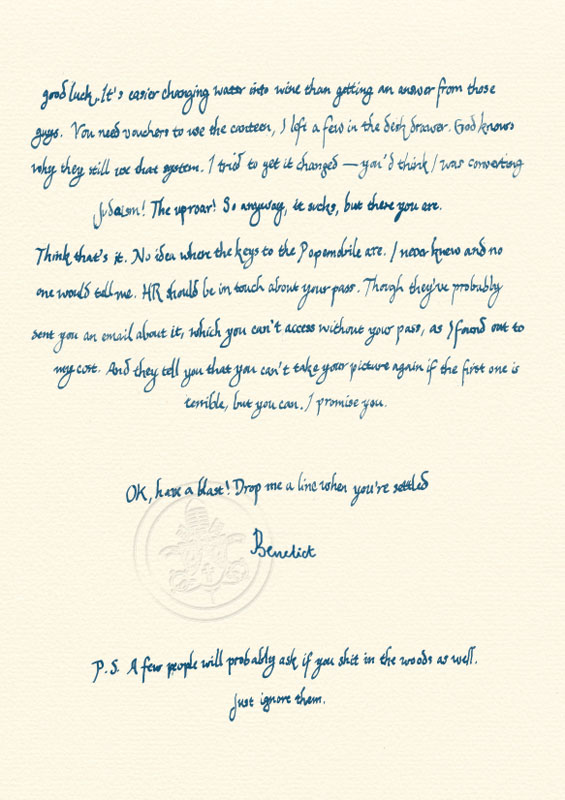 good luck. It's easier changing water into wine than getting an answer from those
guys. You need vouchers to use the canteen, I left a few in the desk drawer. God knows
why they still use that system. I tried to get it changed — you'd think I was converting
Judaism! The uproar! So anyway, it sucks, but there you are.
Think that's it. No idea where the keys to the Popemobile are. I never knew and no
one would tell me. HR should be in touch about your pass. Though they've probably
sent you an email about it, which you can't access without your pass, as I found out to
my cost. And they tell you that you can't take your picture again if the first one is
terrible, but you can. I promise you.
OK, have a blast! Drop me a line when you're settled
Benedict
P.S. A few people will probably ask if you shit in the woods as well.
Just ignore them.